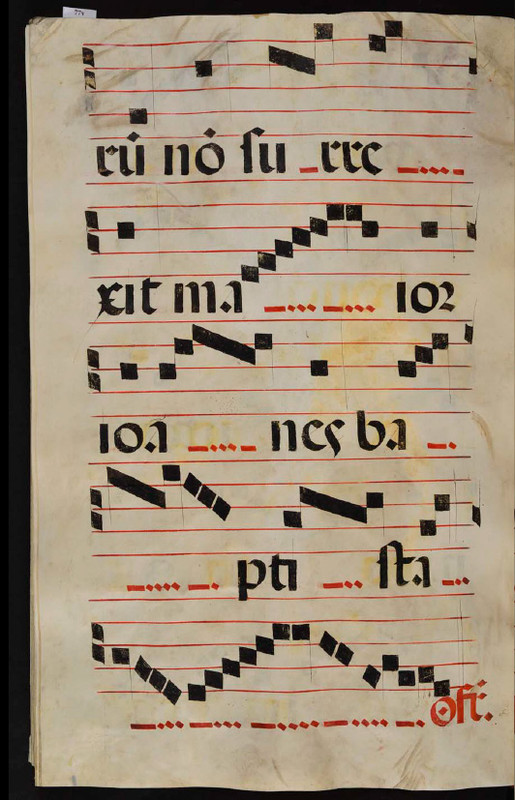 rū nō ſu rre
xit ma ior
ioa nes ba
pti ſta
Off.